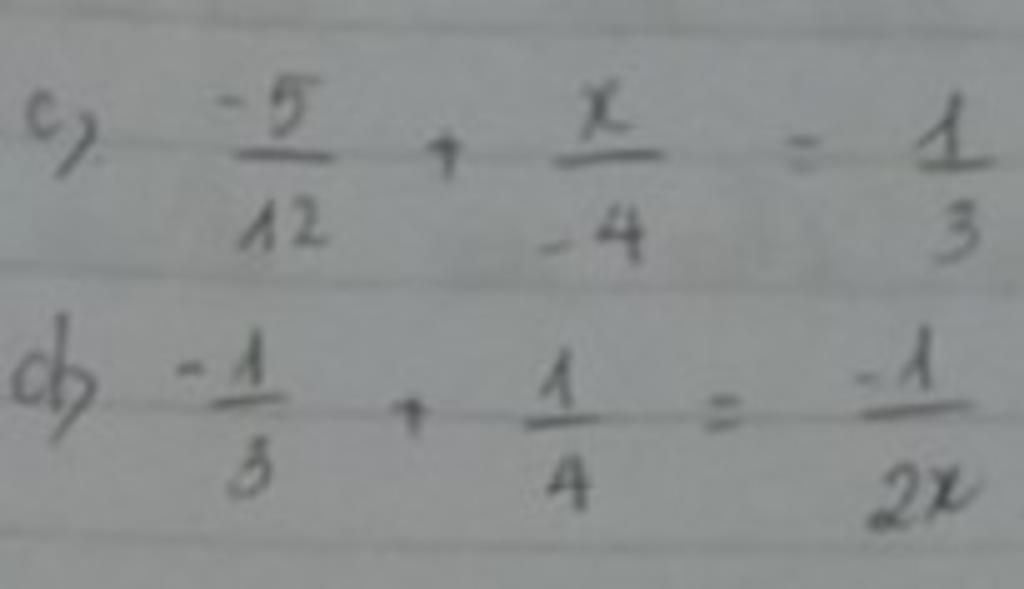 c) -5/12 + x/-4 = 1/3
d) -1/3 + 1/4 = -1/2x